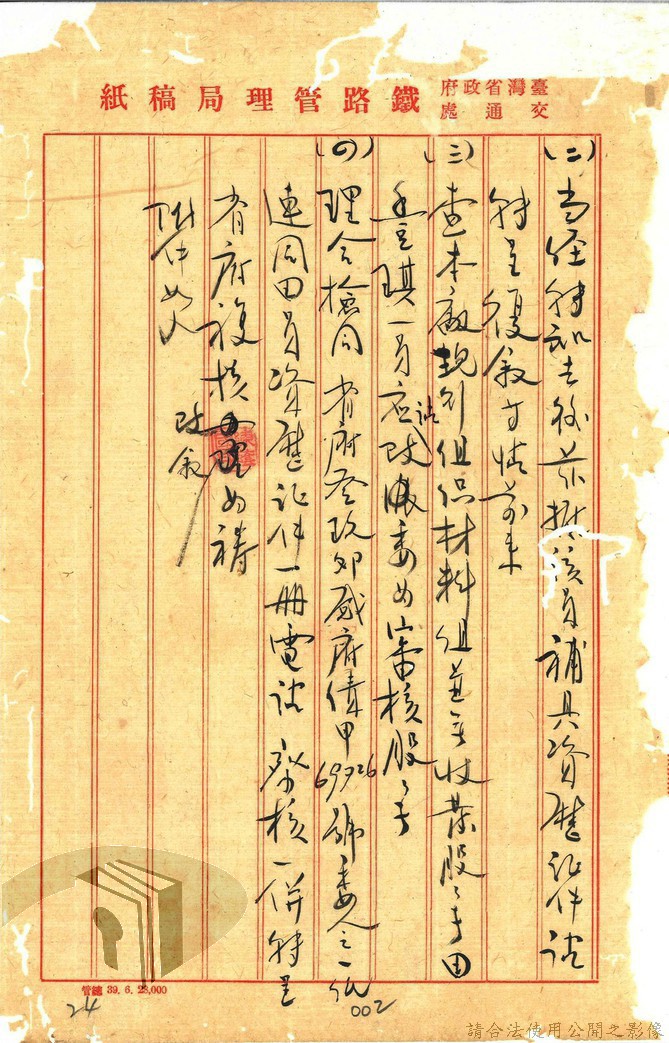 臺灣省政府
交通處
鐵路管理局稿紙
(二)当經轉知去後茲據該員補具資歷証件請
轉呈復敘等情前來
(三)查本廠規劃組係材料組並無收募股股長田
豊琪一員應請改委為審核股股長
(四)理合檢同 省府參玖卯感府債甲69726號委令一紙
連同田員資歷証件一冊電請 察核一併轉呈
省府複核改敘為禱
附件如文
管總 39. 6. 23,000
24
002
請合法使用公開之影像